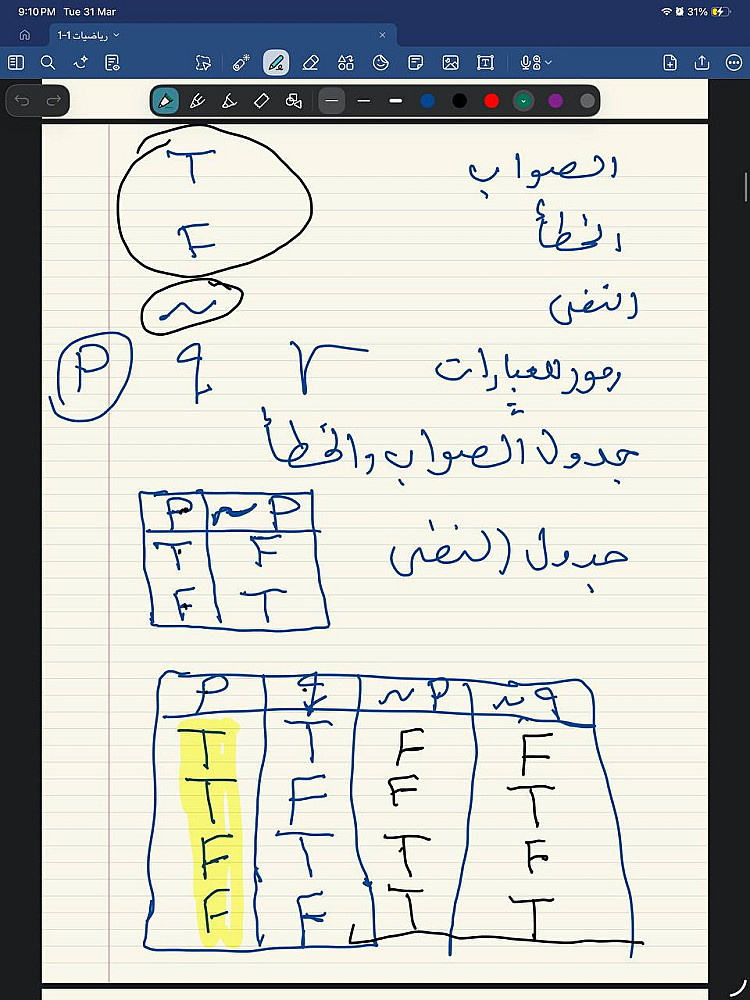 9:10 PM Tue 31 Mar 31%
رياضيات 1-1
الصواب T
الخطأ F
النفي ~
رموز للعبارات P q r
جدول الصواب والخطأ
جدول النفي
P ~P
T F
F T
P q ~P ~q
T T F F
T F F T
F T T F
F F T T